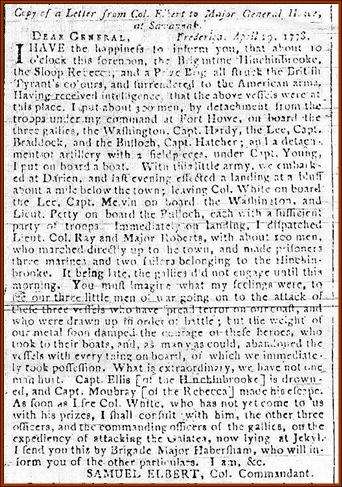 Copy of a Letter from Col. Elbert to Major General Howe,
at Savannah.
DEAR GENERAL, Frederica, April 19, 1778.
I HAVE the happiness to inform you, that about 10
o'clock this forenoon, the Brigantine Hinchinbrooke,
the Sloop Rebecca, and a Prize Brig, all struck the British
Tyrant's colours, and surrendered to the American arms.
Having received intelligence, that the above vessels were at
this place, I put about 300 men, by detachment from the
troops under my command at Fort Howe, on board the
three gallies, the Washington, Capt. Hardy, the Lee, Capt.
Braddock, and the Bulloch, Capt. Hatcher; and a detach-
ment of artillery with a field piece, under Capt. Young,
I put on board a boat. With this little army, we embark-
ed at Darien, and last evening effected a landing at a bluff
about a mile below the town; leaving Col. White on board
the Lee, Capt. Melvin on board the Washington, and
Lieut. Petty on board the Bulloch, each with a sufficient
party of troops. Immediately on landing, I dispatched
Lieut. Col. Ray and Major Roberts, with about 100 men,
who marched directly up to the town, and made prisoners
three marines and two sailors belonging to the Hinchin-
brooke. It being late, the gallies did not engage until this
morning. You must imagine what my feelings were, to
see our three little men of war going on to the attack of
these three vessels who have spread terror on our coast, and
who were drawn up in order of battle; but the weight of
our metal soon damped the courage of these heroes, who
took to their boats, and, as many as could, abandoned the
vessels with every thing on board, of which we immediate-
ly took possession. What is extraordinary, we have not one
man hurt. Capt. Ellis [of the Hinchinbrooke] is drown-
ed, and Capt. Moubray [of the Rebecca] made his escape.
As soon as I see Col. White, who has not yet come to us
with his prizes, I shall consult with him, the other three
officers, and the commanding officers of the gallies, on the
expediency of attacking the Galatea, now lying at Jekyl.
I send you this by Brigade Major Habersham, who will in-
form you of the other particulars. I am, &c.
SAMUEL ELBERT, Col. Commandant.